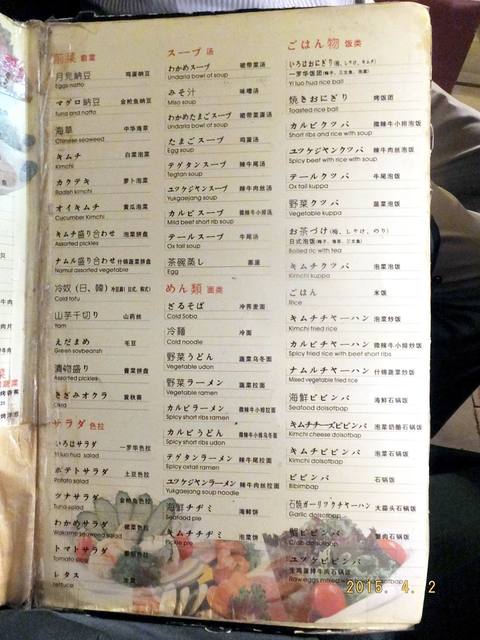 前菜 前菜
月見納豆 鸡蛋納豆
Eggs natto
マグロ納豆 金枪鱼納豆
Tuna and natto
海草 中华海草
Chinese seaweed
キムチ 白菜泡菜
Kimchi
カクテキ 萝卜泡菜
Radish kimchi
オイキムチ 黄瓜泡菜
Cucumber Kimchi
キムチ盛り合わせ 泡菜拼盘
Assorted pickles
ナムル盛り合わせ 什锦蔬菜拼盘
Namul assorted vegetable
冷奴（日、韓） 冷豆腐(日式、韩式)
Cold tofu
山芋千切り 山药丝
Yam
えだまめ 毛豆
Green soybeansh
漬物盛り 酱菜拼盘
Assorted pickles
きざみオクラ 黄秋葵
Okra
サラダ 色拉
いろはサラダ 一罗华色拉
Yi luo hua salad
ポテトサラダ 土豆色拉
Potato salad
ツナサラダ 金枪鱼色拉
Tuna salad
わかめサラダ 裙菜色拉
Wakame seaweed salad
トマトサラダ 番茄色拉
Tomato salad
レタス 生菜
Lettuce
スープ 汤
わかめスープ 裙带菜汤
Undaria bowl of soup
みそ汁 味噌汤
Miso soup
わかめたまごスープ 裙带菜蛋汤
Undaria bowl of soup
たまごスープ 鸡蛋汤
Egg soup
テグタンスープ 辣牛尾汤
Tegtan soup
ユッケジャンスープ 辣牛肉丝汤
Yukgaejang soup
カルビスープ 微辣牛小排汤
Mild beef short rib soup
テールスープ 牛尾汤
Ox tail soup
茶碗蒸し 蒸蛋
Egg
めん類 面类
ざるそば 冷荞麦面
Cold Soba
冷麺 冷面
Cold noodle
野菜うどん 蔬菜乌冬面
Vegetable udon
野菜ラーメン 蔬菜拉面
Vegetable ramen
カルビラーメン 微辣牛小排拉面
Spicy short ribs ramen
カルビうどん 微辣牛小排乌冬面
Spicy short ribs udon
テグタンラーメン 辣牛尾拉面
Spicy oxtail ramen
ユッケジャンラーメン 辣牛肉丝拉面
Yukgaejang soup noodle
海鮮チヂミ 海鲜饼
Seafood pie
キムチチヂミ 泡菜饼
Pickle pie
ごはん物 饭类
いろはおにぎり(梅、しゃけ、キムチ)
一罗华饭团(梅子、三文鱼、泡菜)
Yi luo hua rice ball
焼きおにぎり 烤饭团
Toasted rice ball
カルビクッパ 微辣牛小排泡饭
Short ribs and rice with soup
ユッケジャンクッパ 辣牛肉丝泡饭
Spicy beef with rice with soup
テールクッパ 牛尾泡饭
Ox tail kuppa
野菜クッパ 蔬菜泡饭
Vegetable kuppa
お茶づけ(梅、しゃけ、のり)
日式泡饭(梅子、三文鱼、海苔)
Boiled ric with tea
キムチクッパ 泡菜泡饭
Kimchi kuppa
ごはん 米饭
Rice
キムチチャーハン 泡菜炒饭
Kimchi fried rice
カルビチャーハン 微辣牛小排炒饭
Spicy fried rice with beef short ribs
ナムルチャーハン 什锦蔬菜炒饭
Mixed vegetable fried rice
海鮮ビビンバ 海鲜石锅饭
Seafood dolsotbap
キムチチーズビビンバ 泡菜奶酪石锅饭
Kimchi cheese dolsotbap
キムチビビンバ 泡菜石锅饭
Kimchi dolsotbap
ビビンバ 石锅饭
Bibimbap
石焼ガーリックチャーハン 大蒜头石锅饭
Garlic dolsotbap
蟹ビビンバ 蟹肉石锅饭
Crab dolsotbap
ユッケビビンバ
生鸡蛋拌牛肉石锅饭
Raw eggs mixed with
2015. 4. 2